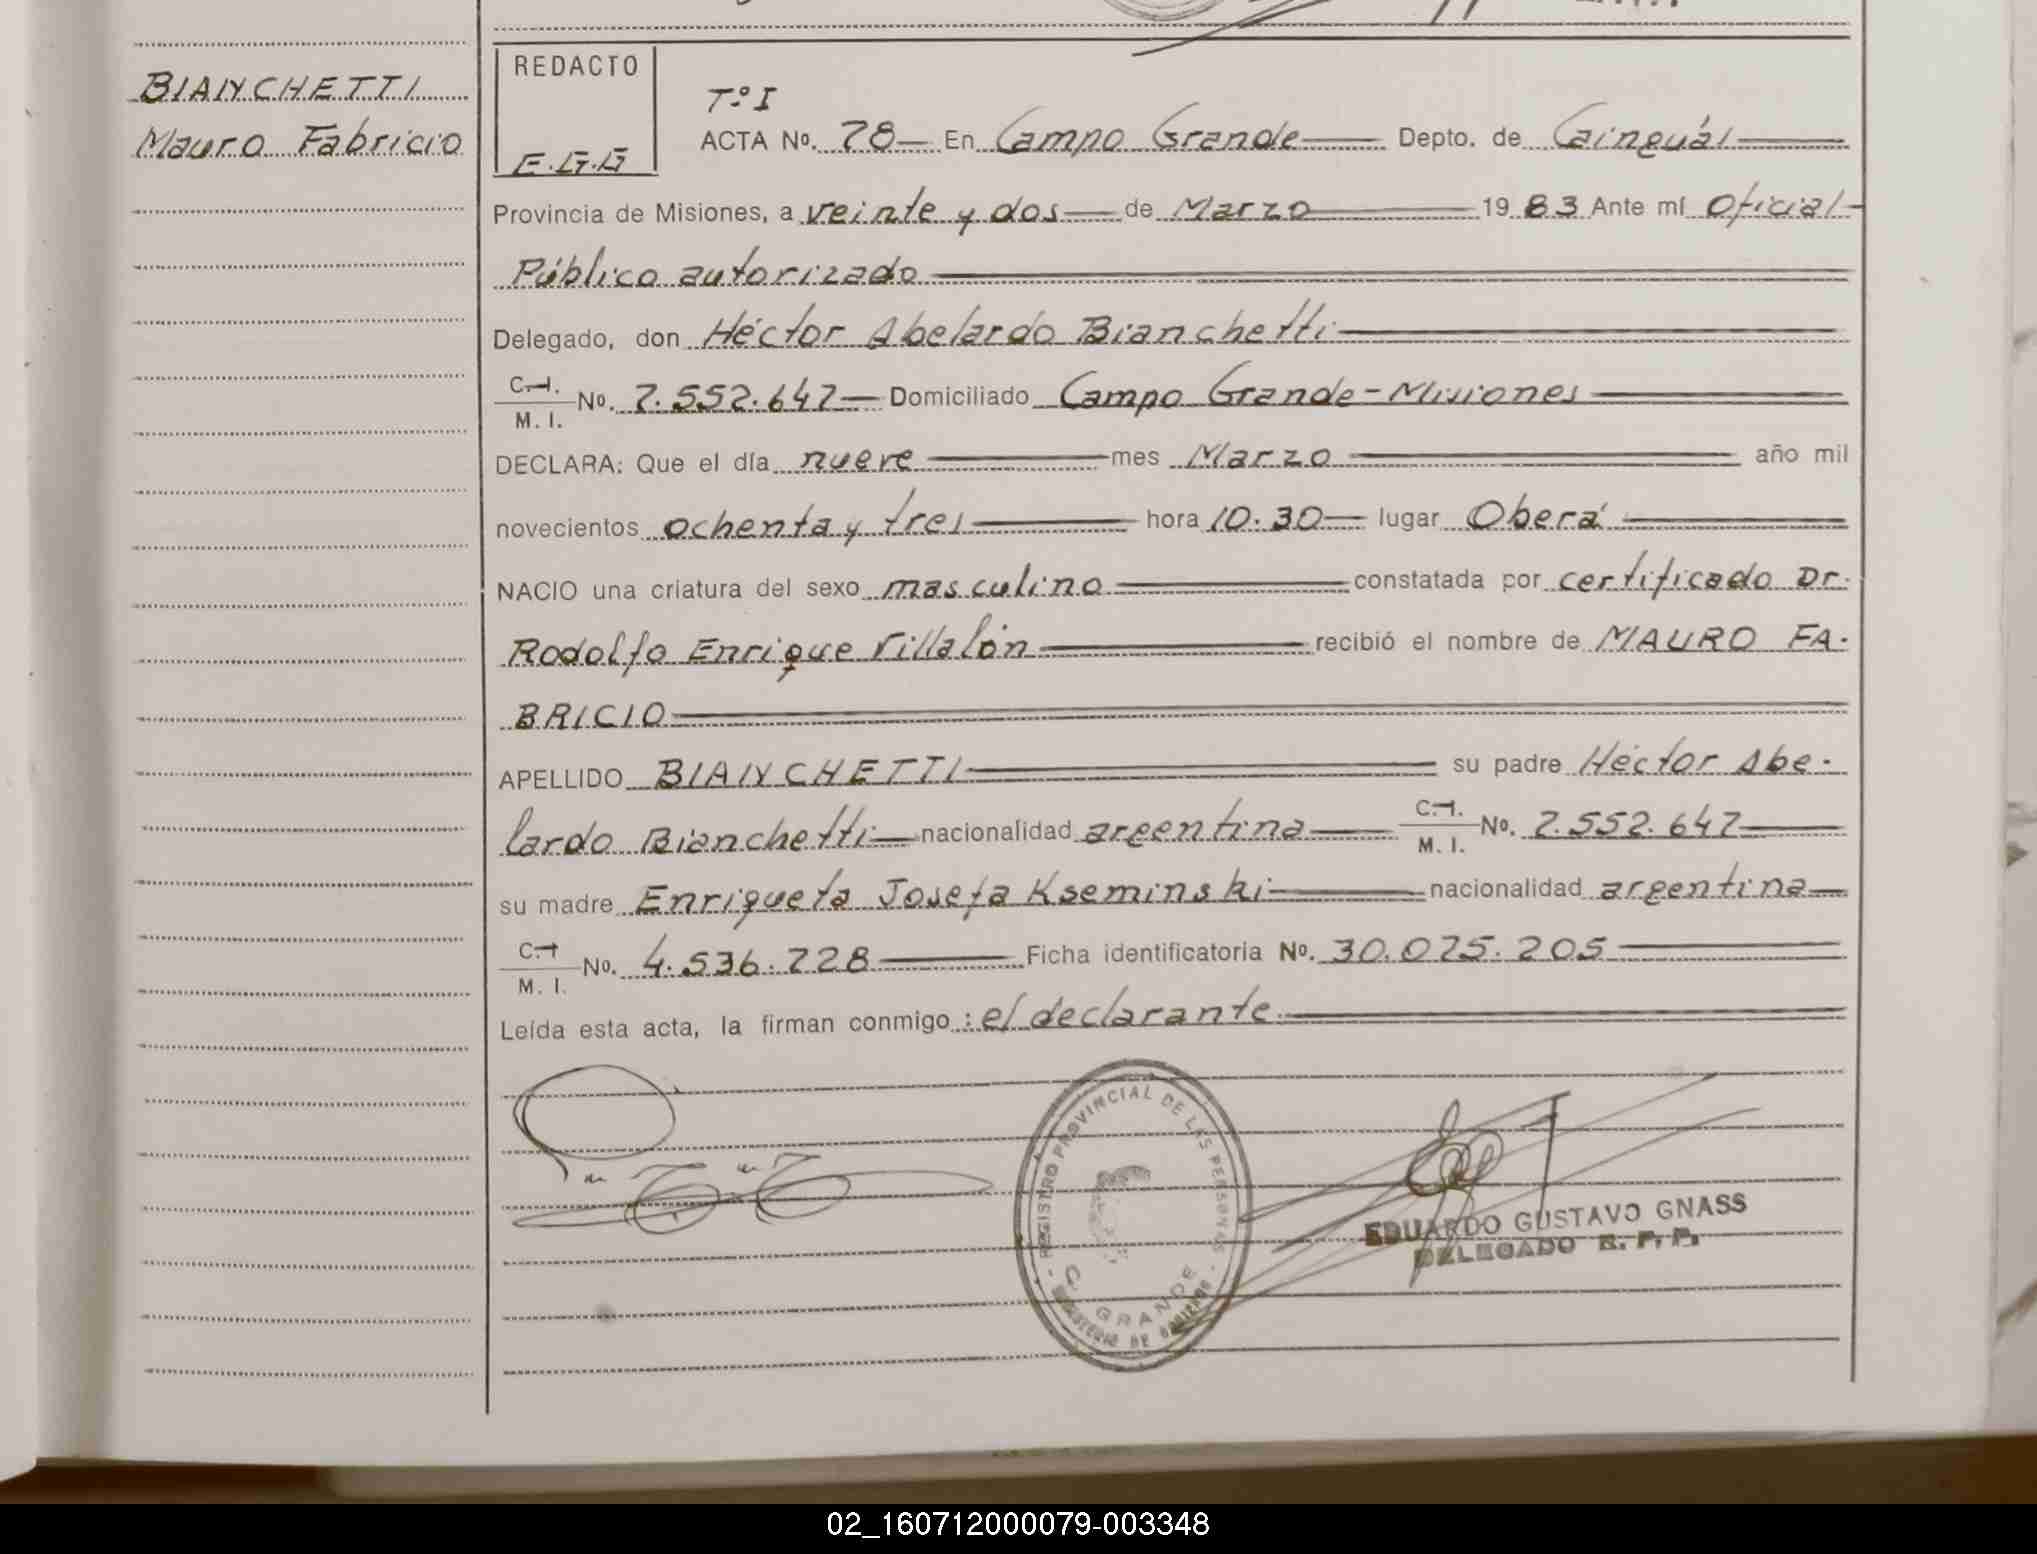 BIANCHETTI
Mauro Fabricio
REDACTO
E.G.G
Tº I
ACTA Nº. 78 En Campo Grande Depto. de Cainguás
Provincia de Misiones, a veinte y dos de Marzo 1983 Ante mí Oficial
Público autorizado
Delegado, don Héctor Abelardo Bianchetti
C.I. M.I. Nº. 7.552.647 Domiciliado Campo Grande-Misiones
DECLARA: Que el día nueve mes Marzo año mil
novecientos ochenta y tres hora 10.30 lugar Oberá
NACIO una criatura del sexo masculino constatada por certificado Dr.
Rodolfo Enrique Villalón recibió el nombre de MAURO FA-
BRICIO
APELLIDO BIANCHETTI su padre Héctor Abe-
lardo Bianchetti nacionalidad argentina C.I. M.I. Nº. 7.552.647
su madre Enriqueta Josefa Kseminski nacionalidad argentina
C.I. M.I. Nº. 4.536.728 Ficha identificatoria Nº. 30.075.205
Leída esta acta, la firman conmigo: el declarante
REGISTRO PROVINCIAL DE LAS PERSONAS
C. GRANDE
MINISTERIO DE GOBIERNO
EDUARDO GUSTAVO GNASS
DELEGADO R. P. P.
02_160712000079-003348